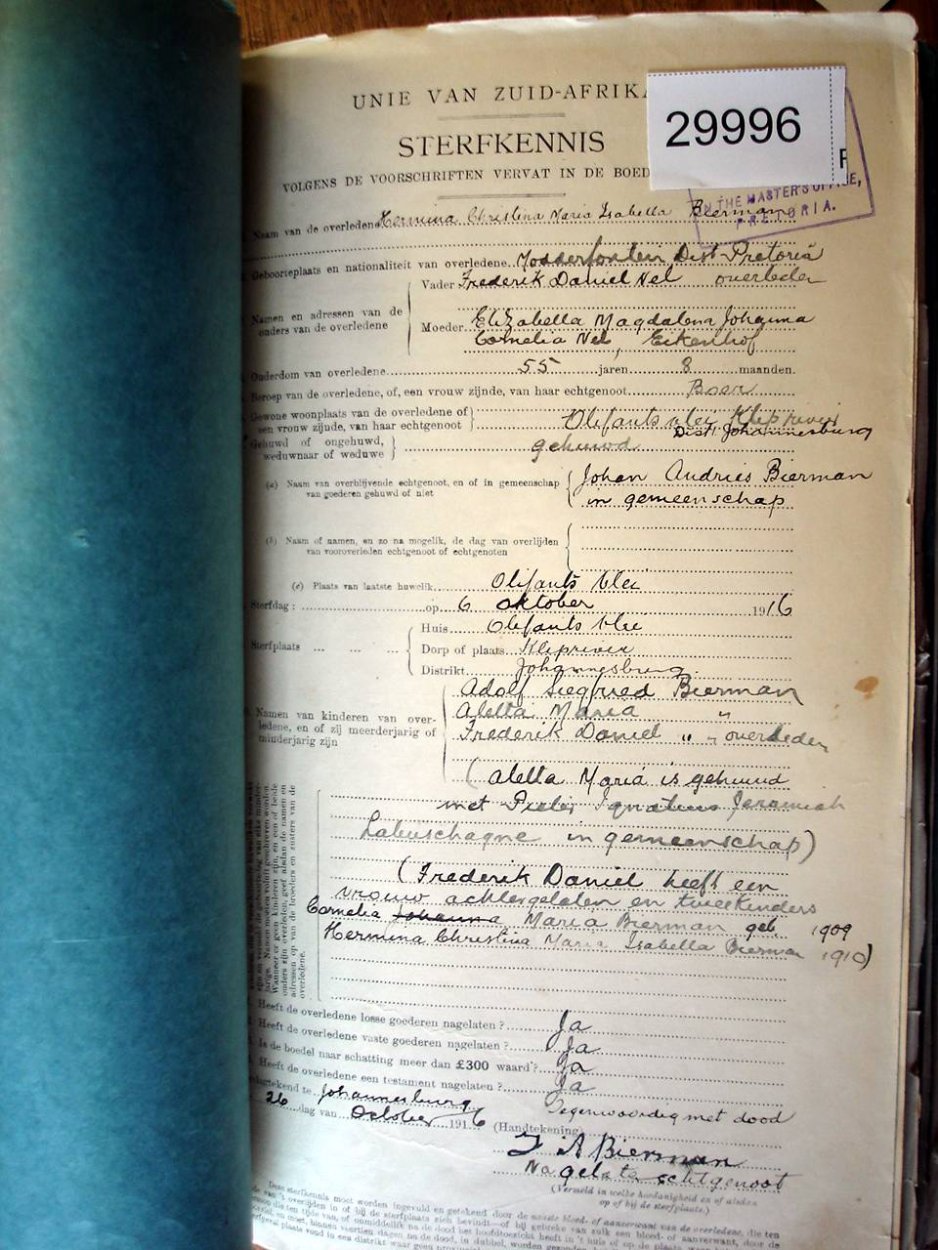 UNIE VAN ZUID-AFRIKA
29996
STERFKENNIS
VOLGENS DE VOORSCHRIFTEN VERVAT IN DE BOED
IN THE MASTER'S OFFICE,
PRETORIA.
Naam van de overledene Hermina Christina Maria Isabella Bierman
Geboorteplaats en nationaliteit van overledene Modderfontein Dist Pretoria
Namen en adressen van de ouders van de overledene
Vader Frederik Daniel Nel overleden
Moeder Elizabella Magdalena Johanna
Cornelia Nel, Eikenhof
Ouderdom van overledene 55 jaren 8 maanden.
Beroep van de overledene, of, een vrouw zijnde, van haar echtgenoot Boer
Gewone woonplaats van de overledene of een vrouw zijnde, van haar echtgenoot Olifants vlei Kliprivier
Dist. Johannesburg
Gehuwd of ongehuwd, weduwnaar of weduwe gehuwd
(a) Naam van overblijvende echtgenoot, en of in gemeenschap van goederen gehuwd of niet Johan Andries Bierman
in gemeenschap
(b) Naam of namen, en zo na mogelik, de dag van overlijden
van vooroverleden echtgenoot of echtgenoten
(c) Plaats van laatste huwelik Olifants vlei
Sterfdag: op 6 oktober 1916
Sterfplaats
Huis Olifants vlei
Dorp of plaats Kliprivier
Distrikt Johannesburg
Namen van kinderen van overledene, en of zij meerderjarig of minderjarig zijn
Adolf Siegfried Bierman
Aletta Maria "
Frederik Daniel " " overleden
(Aletta Maria is gehuwd
met Pieter Ignatius Jeremiah
Labuschagne in gemeenschap)
(Frederik Daniel heeft een
vrouw achtergelaten en twee kinders
Cornelia Johanna Maria Bierman geb. 1909
Hermina Christina Maria Isabella Bierman 1910)
Heeft de overledene losse goederen nagelaten? Ja
Heeft de overledene vaste goederen nagelaten? Ja
Is de boedel naar schatting meer dan £300 waard? Ja
Heeft de overledene een testament nagelaten? Ja
te Johannesburg
26 dag van October 1916
Tegenwoordig met dood
(Handtekening)
J A Bierman
Nagelate echtgenoot
(Vermeld in welke hoedanigheid en of aldaar
op of bij de sterfplaats.)
Deze sterfkennis moet worden ingevuld en getekend door de naaste bloed- of aanverwant van de overledene, die ten